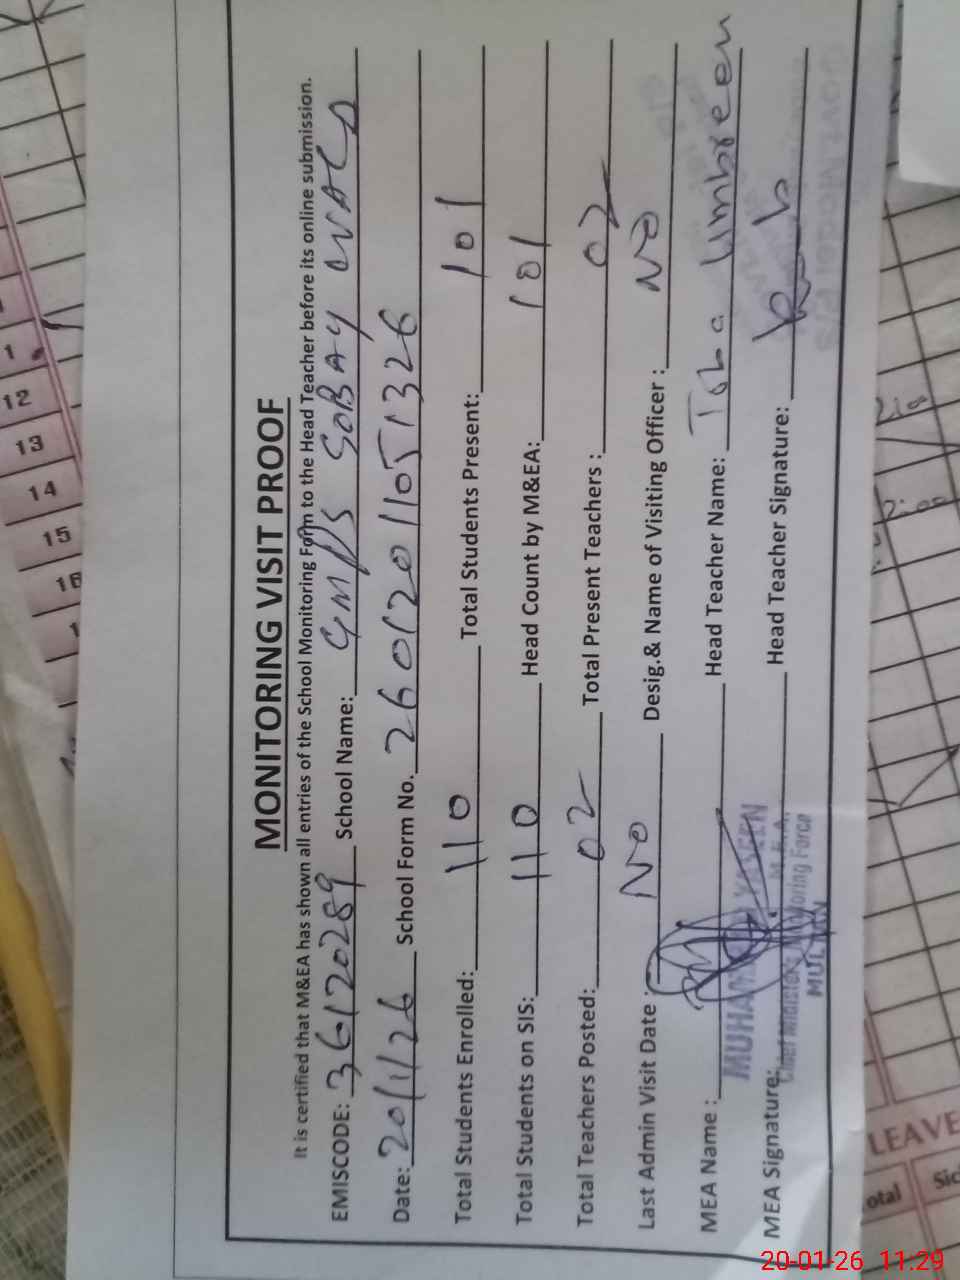 MONITORING VISIT PROOF
It is certified that M&EA has shown all entries of the School Monitoring Form to the Head Teacher before its online submission.
EMISCODE: 36120289 School Name: GMPS SOBAY WALA
Date: 20/1/26 School Form No. 260120110513 26
Total Students Enrolled: 110 Total Students Present: 101
Total Students on SIS: 110 Head Count by M&EA: 101
Total Teachers Posted: 02 Total Present Teachers : 02
Last Admin Visit Date : No Desig.& Name of Visiting Officer : No
MEA Name : Head Teacher Name: Umbreen
MEA Signature: Head Teacher Signature:
MUHAMMAD YASEEN
M.E.A.
Chief Minister's Monitoring Force
MULTAN
1
12
13
14
15
16
LEAVE
otal
Sic
2:00
20-01-26 11:29